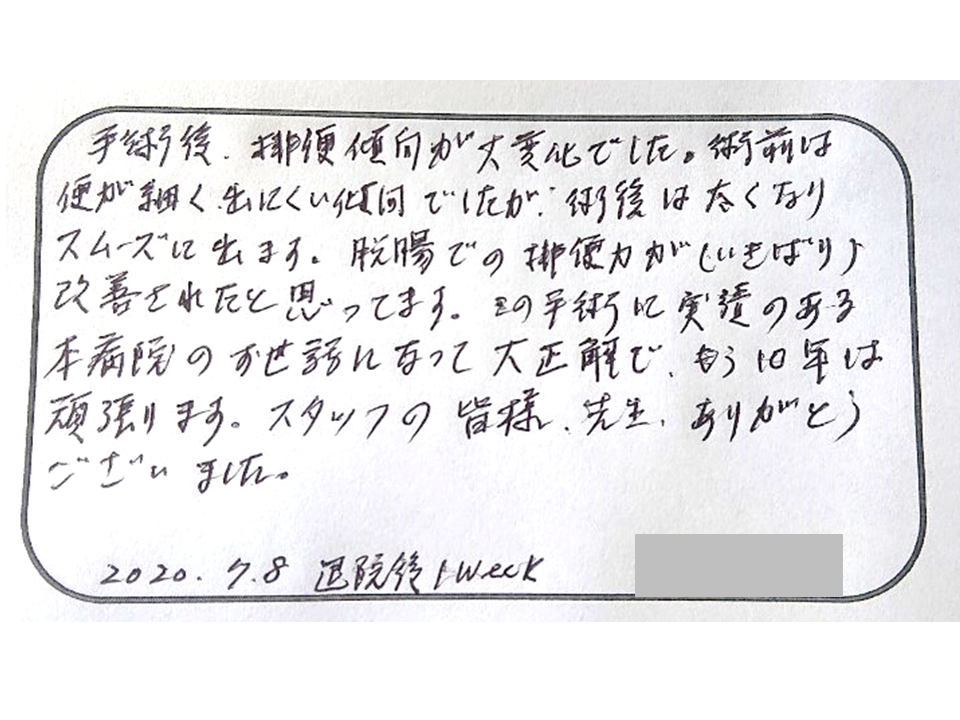 手術後、排便傾向が大変化でした。術前は
便が細く、出にくい傾向でしたが、術後は太くなり
スムーズに出ます。脱腸での排便力が(いきばり)
改善されたと思ってます。この手術に実績のある
本病院のお世話になって大正解で、もう10年は
頑張ります。スタッフの皆様、先生、ありがとう
ございました。
2020.7.8 退院後1Week